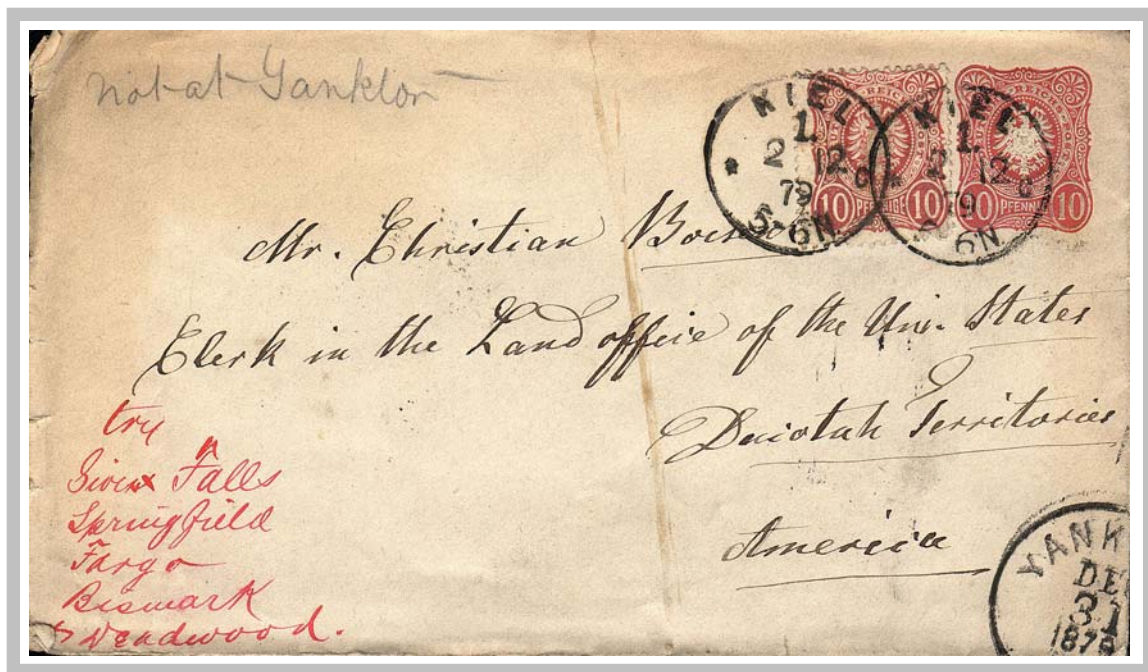 not at Yankton
KIEL
1.
2 12
79 C
5-6N
KIEL
1.
2 12
79 C
6N
REICHS-POST
10 PFENNIGE 10
REICHS-POST
10 PFENNIG 10
Mr. Christian
Clerk in the Land office of the Uni. States
Daiotah Territories
America
try
Sioux Falls
Springfield
Fargo
Bismark
& Deadwood.
YANK
DEC
31
187